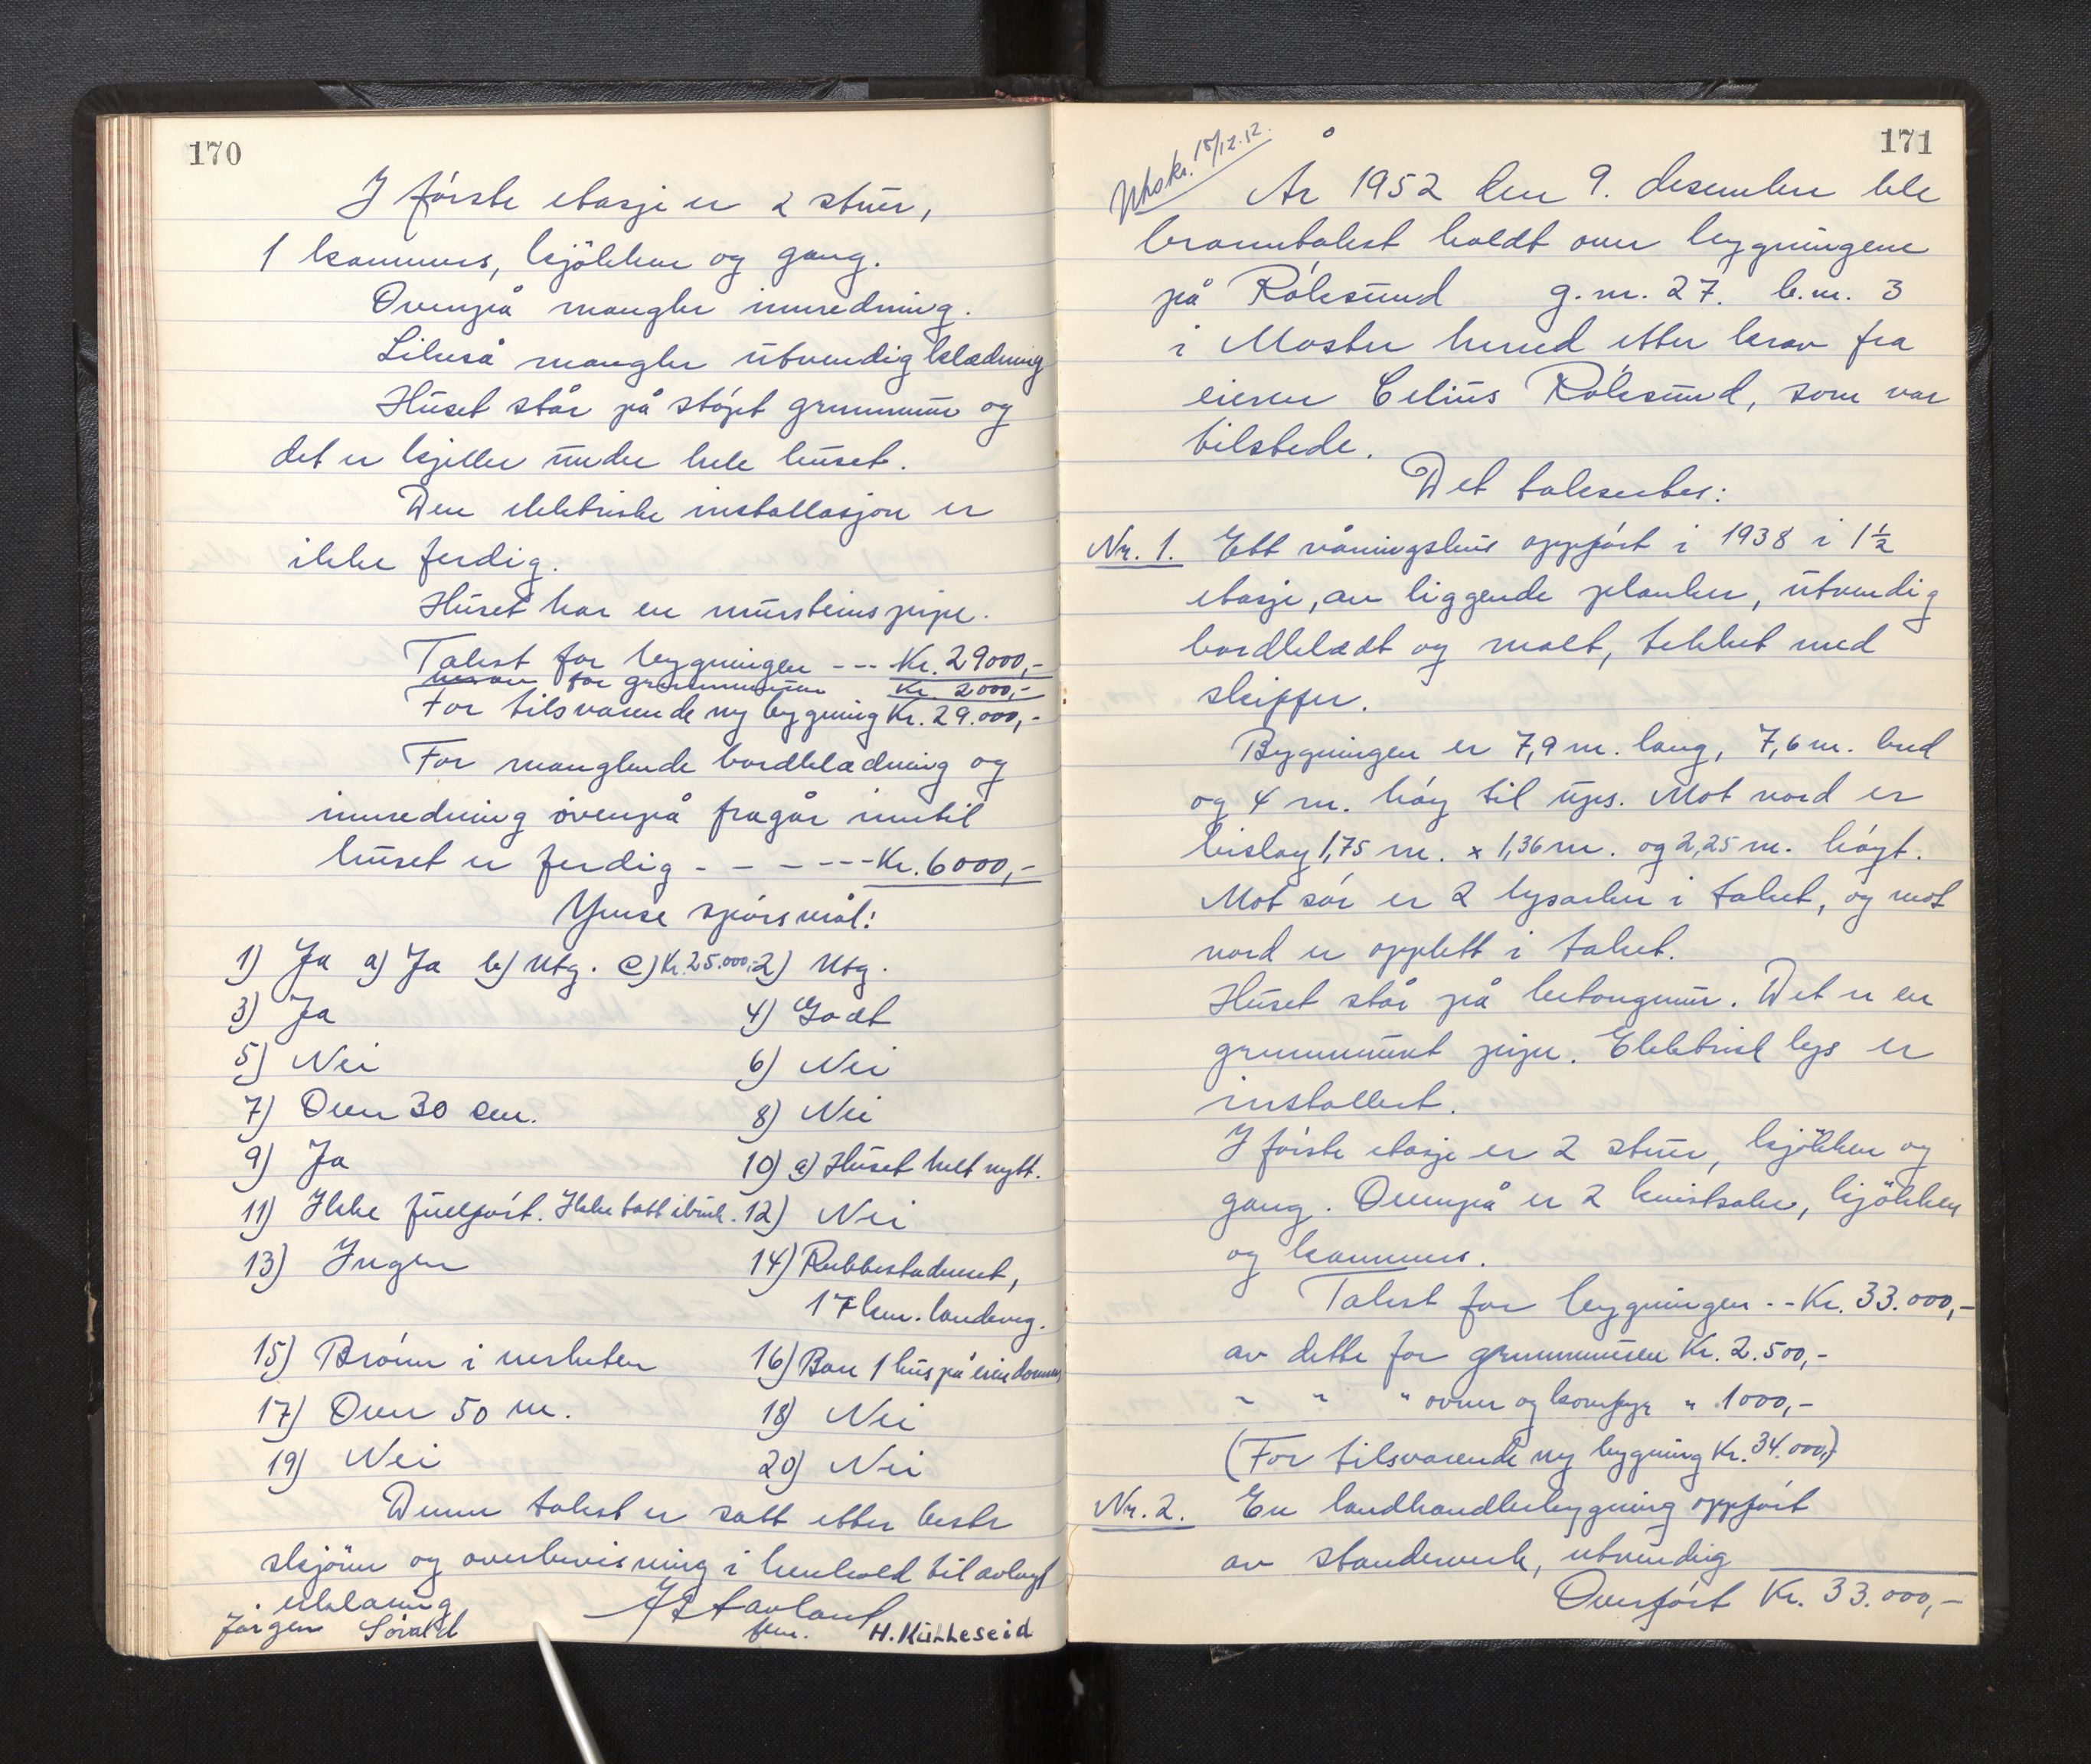 170
I første etasje er 2 stuer,
1 kammers, kjökken og gang.
Ovenpå mangler innredning.
Likeså mangler utvendig klædning
Huset står på støpt grunnmur og
det er kjeller under hele huset.
Den elektriske installasjon er
ikke ferdig.
Huset har en mursteinspipe.
Takst for bygningen --- Kr. 29000,-
herav for grunnmuren Kr. 2000,-
For tilsvarende ny bygning Kr. 29.000,-
For manglende bordklædning og
innredning ovenpå fragår inntil
huset er ferdig - - - --- Kr. 6000,-
Ymse spørsmål:
1) Ja a) Ja b) Utg. c) Kr. 25.000,- 2) Utg.
3) Ja 4) Godt
5) Nei 6) Nei
7) Over 30 cm. 8) Nei
9) Ja 10) a) Huset helt nytt.
11) Ikke fullført. Ikke tatt i bruk. 12) Nei
13) Ingen 14) Rubbestadneset,
17 km. landeveg.
15) Brønn i nerheten 16) Bare 1 hus på eiendommen
17) Over 50 m. 18) Nei
19) Nei 20) Nei
Denne takst er satt etter beste
skjönn og overbevisning i henhold til avlagt
erklæring
Jørgen Sørald
fm. H. Kulleseid
171
Utskr. 15/12.52.
År 1952 den 9. desember ble
branntakst holdt over bygningene
på Røksund g.nr. 27. b.nr. 3
i Moster herred etter krav fra
eieren Celius Røksund, som var
tilstede.
Det takseres:
Nr. 1. Ett våningshus oppført i 1938 i 1½
etasje, av liggende planker, utvendig
bordklædt og malt, tekket med
skiffer.
Bygningen er 7,9 m. lang, 7,6 m. bred
og 4 m. høg til ups. Mot nord er
bislag 1,75 m. x 1,36 m. og 2,25 m. høgt.
Mot sør er 2 lysarker i taket, og mot
nord er opplett i taket.
Huset står på betongmur. Det er en
grunnmurt pipe. Elektrisk lys er
installert.
I første etasje er 2 stuer, kjökken og
gang. Ovenpå er 2 kvistsaler, kjökken
og kammers.
Takst for bygningen -- Kr. 33.000,-
av dette for grunnmuren Kr. 2.500,-
" " " ovner og komfyr " 1000,-
(For tilsvarende ny bygning Kr. 34.000,-)
Nr. 2. En landhandlerbygning oppført
av standerverk, utvendig
Overført Kr. 33.000,-